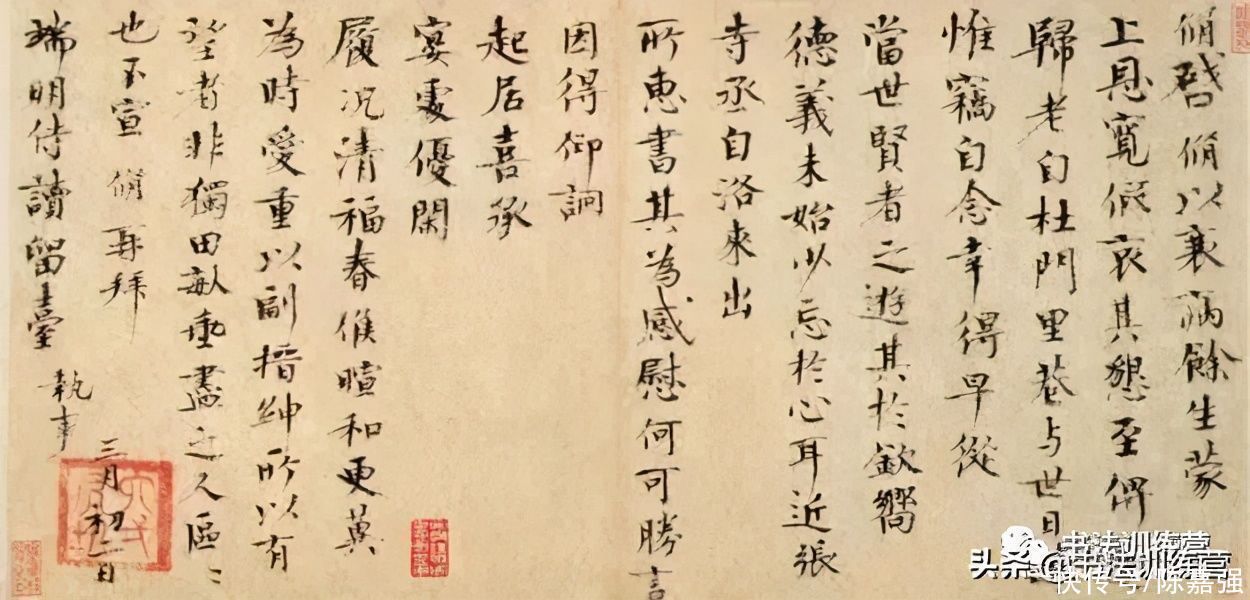 脩啓脩以衰病餘生蒙
上恩寬假哀其懇至俾
歸老自杜門里巷与世日
惟竊自念幸得早從
當世賢者之遊其於欽嚮
德義未始少忘於心耳近張
寺丞自洛來出
所惠書其為感慰何可勝言
因得仰詗
起居喜承
宴處優閑
履况清福春候暄和更冀
為時愛重以副搢紳所以有
望者非獨田畝垂盡之人區〻
也不宣 脩再拜
端明侍讀留臺 執事
三月初二日
头条@书法训练营
快传号/陈嘉强